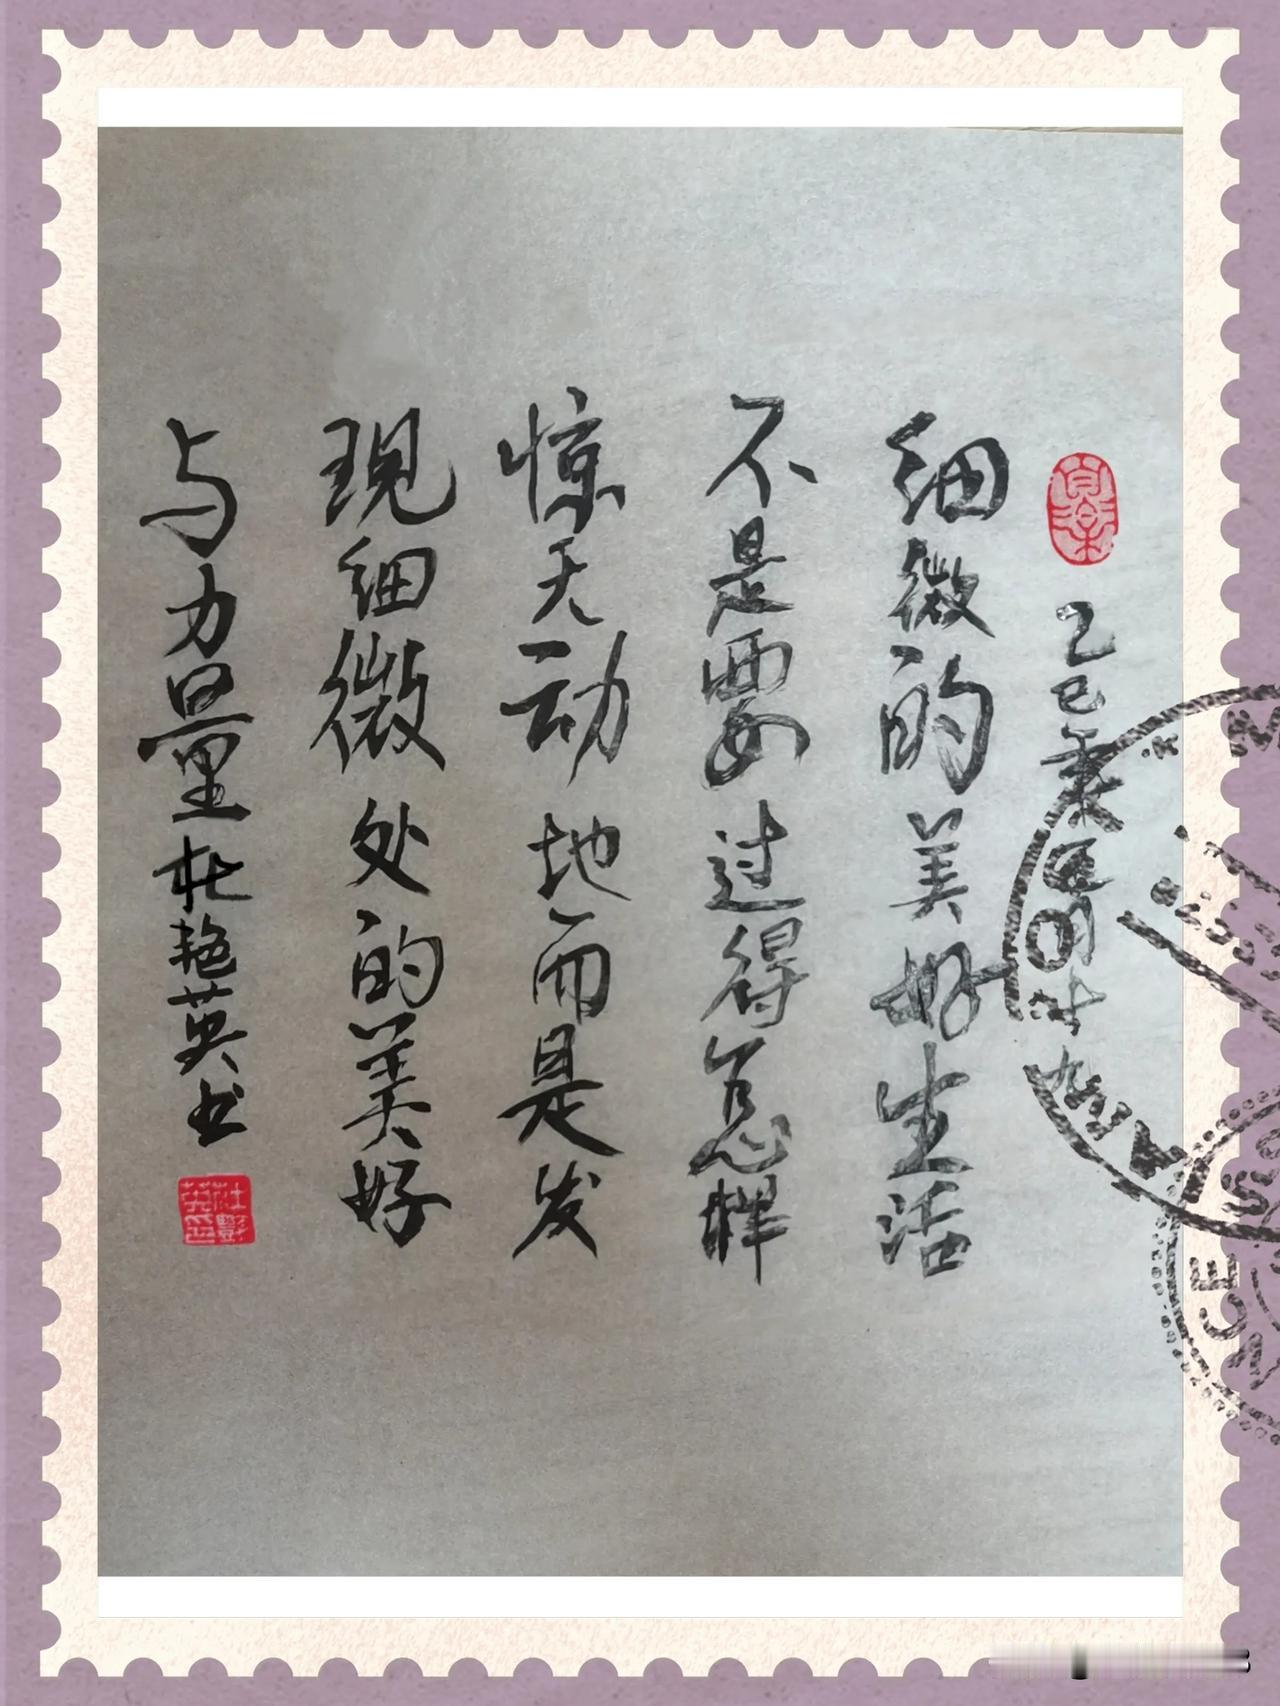 乙巳年四月廿九
细微的美好生活
不是要过得怎样
惊天动地而是发
现细微处的美好
与力量杜艳英书